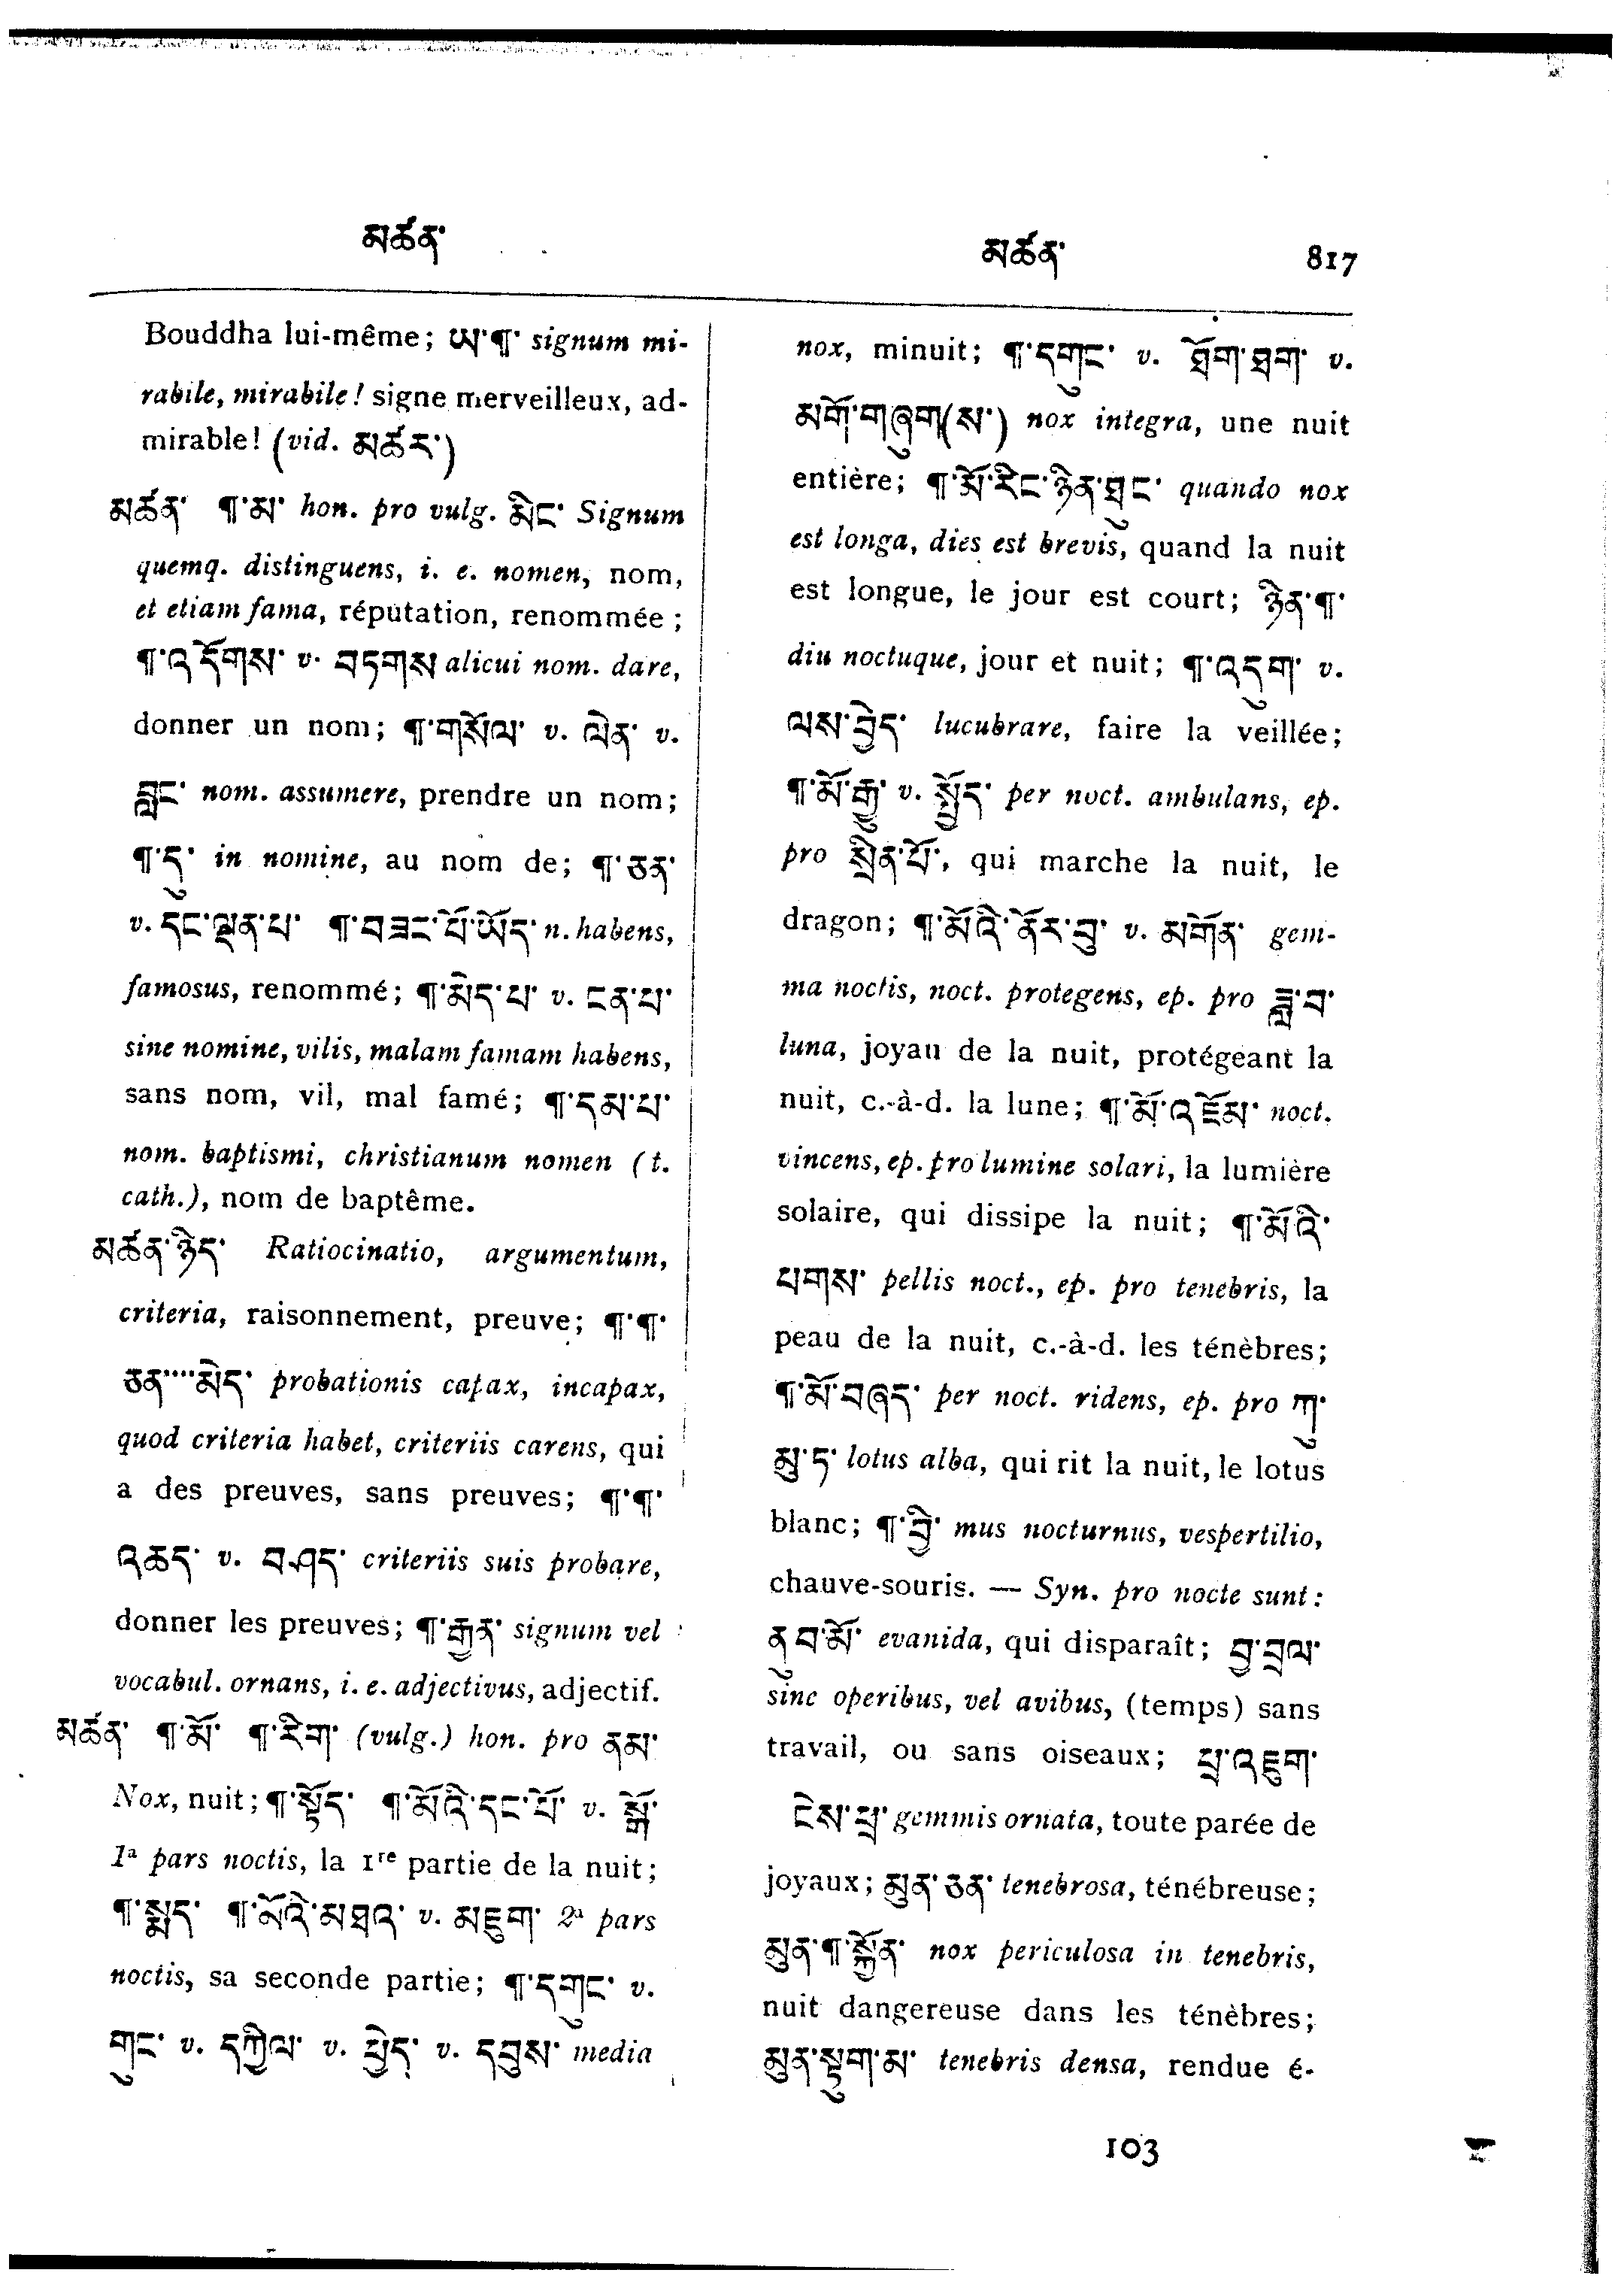 མཚན་
མཚན་ 817
Bouddha lui-même; ཡ་¶་ signum mi-
rabile, mirabile! signe merveilleux, ad-
mirable! (vid. མཚར་)
མཚན་ ¶་མ་ hon. pro vulg. མིང་ Signum
quemq. distinguens, i. e. nomen, nom,
et etiam fama, réputation, renommée;
¶་འདོགས་ v. བཏགས alicui nom. dare,
donner un nom; ¶་གསོལ་ v. ལེན་ v.
བླང་ nom. assumere, prendre un nom;
¶་དུ་ in nomine, au nom de; ¶་ཅན་
v. དང་ལྡན་པ་ ¶་བཟང་པོ་ཡོད་ n. habens,
famosus, renommé; ¶་མེད་པ་ v. ངན་པ་
sine nomine, vilis, malam famam habens,
sans nom, vil, mal famé; ¶་དམ་པ་
nom. baptismi, christianum nomen (t.
cath.), nom de baptême.
མཚན་ཉིད་ Ratiocinatio, argumentum,
criteria, raisonnement, preuve; ¶་¶་
ཅན་་་་མེད་ probationis capax, incapax,
quod criteria habet, criteriis carens, qui
a des preuves, sans preuves; ¶་¶་
འཆད་ v. བཤད་ criteriis suis probare,
donner les preuves; ¶་རྒྱན་ signum vel
vocabul. ornans, i. e. adjectivus, adjectif.
མཚན་ ¶་མོ་ ¶་རིག་ (vulg.) hon. pro ནམ་
Nox, nuit; ¶་སྟོད་ ¶་མོའི་དང་པོ་ v. སྒོ་
1ª pars noctis, la 1re partie de la nuit;
¶་སྨད་ ¶་མོའི་མཐའ་ v. མཇུག་ 2ª pars
noctis, sa seconde partie; ¶་དགུང་ v.
གུང་ v. དཀྱིལ་ v. ཕྱེད་ v. དབུས་ media
nox, minuit; ¶་དགུང་ v. ཐོག་ཐག་ v.
མགོ་གཞུག(ས་) nox integra, une nuit
entière; ¶་མོ་རིང་ཉིན་ཐུང་ quando nox
est longa, dies est brevis, quand la nuit
est longue, le jour est court; ཉིན་¶་
diu noctuque, jour et nuit; ¶་འདུག་ v.
ལས་བྱེད་ lucubrare, faire la veillée;
¶་མོ་རྒྱུ་ v. སྤྱོད་ per noct. ambulans, ep.
pro སྲིན་པོ་, qui marche la nuit, le
dragon; ¶་མོའི་ནོར་བུ་ v. མགོན་ gem-
ma noctis, noct. protegens, ep. pro ཟླ་བ་
luna, joyau de la nuit, protégeant la
nuit, c.-à-d. la lune; ¶་མོ་འཇོམ་ noct.
vincens, ep. pro lumine solari, la lumière
solaire, qui dissipe la nuit; ¶་མོའི་
པགས་ pellis noct., ep. pro tenebris, la
peau de la nuit, c.-à-d. les ténèbres;
¶་མོ་བཞད་ per noct. ridens, ep. pro ཀུ་
མུ་ད་ lotus alba, qui rit la nuit, le lotus
blanc; ¶་བྱི་ mus nocturnus, vespertilio,
chauve-souris. — Syn. pro nocte sunt:
ནུབ་མོ་ evanida, qui disparaît; བྱ་བྲལ་
sine operibus, vel avibus, (temps) sans
travail, ou sans oiseaux; ཕྲ་འཇུག་
ངེས་ཕྲ་ gemmis ornata, toute parée de
joyaux; མུན་ཅན་ tenebrosa, ténébreuse;
མུན་¶་སྐྱོན་ nox periculosa in tenebris,
nuit dangereuse dans les ténèbres;
མུན་སྟུག་མ་ tenebris densa, rendue é-
103